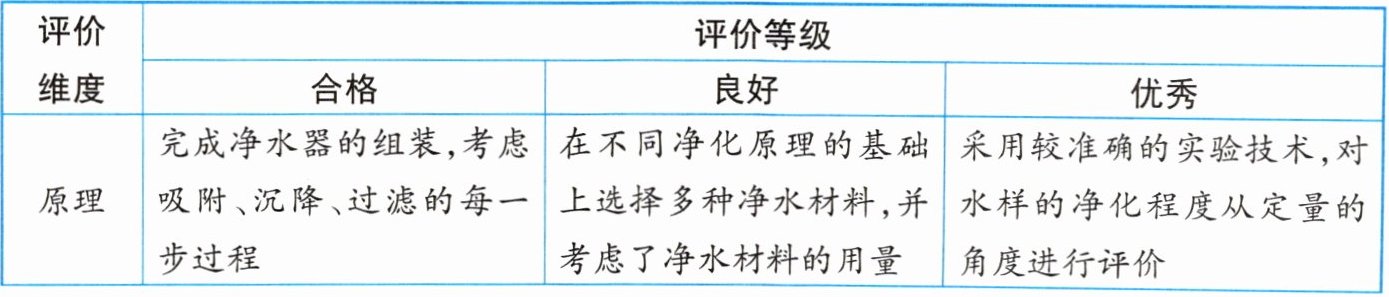 评价
维度
评价等级
合格
良好
优秀
原理
完成净水器的组装,考虑
吸附、沉降、过滤的每一
步过程
在不同净化原理的基础
上选择多种净水材料,并
考虑了净水材料的用量
采用较准确的实验技术,对
水样的净化程度从定量的
角度进行评价